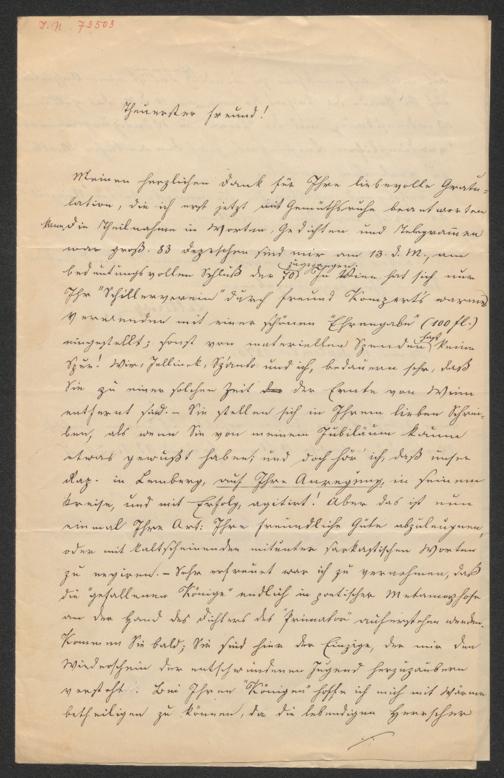 I.N. 73503
Theuerster Freund!
Meinen herzlichen Dank für Ihre liebevolle Gratu-
lation, die ich erst jetzt mit Gemüthsruhe beantworten
kann, die Theilnahme in Worten, Gedichten und Telegrammen
war groß. 83 Depeschen sind mir am 13. d. M., am
zugegangen.
bedeutungsvollen Schluß der 70 In Wien hat sich nur
Ihr "Schillerverein" durch Freund Komperts warmes
Verwenden mit einer schönen "Ehrengabe" (100 fl.)
eingestellt; sonst von materiellen Spenden fast keine
Spur! Wir, Jellinek, Szántó und ich, bedauern sehr, daß
Sie zu einer solchen Zeit der Ernte von Wien
entfernt sind. – Sie stellen sich in Ihrem lieben Schrei-
ben, als wenn Sie von meinem Jubiläum kaum
etwas gewußt haben, und doch hör' ich, daß unser
Rap. in Lemberg, auf Ihre Anregung, in seinem
Kreise, und mit Erfolg, agitirt! Aber das ist nun
einmal Ihre Art: Ihre freundliche Güte abzuleugnen,
oder mit kaltscheinenden mitunter sarkastischen Worten
zu negiren. – Sehr erfreuet war ich zu vernehmen, daß
die "gefallenen Könige" endlich in poetischer Metamorphose
an der Hand des Dichters des "Primator" auferstehen werden.
Kommen Sie bald; Sie sind hier der Einzige, der mir den
Wiederschein der entschwundenen Jugend herzuzaubern
versteht. Bei Ihren "Königen" hoffe ich mich mit Wärme
betheiligen zu können, da die lebendigen Herrscher